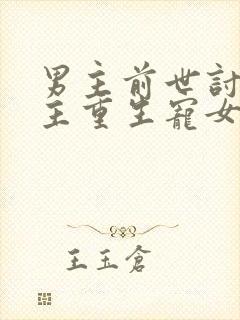 男主前世討
主重生寵女
王玉倉